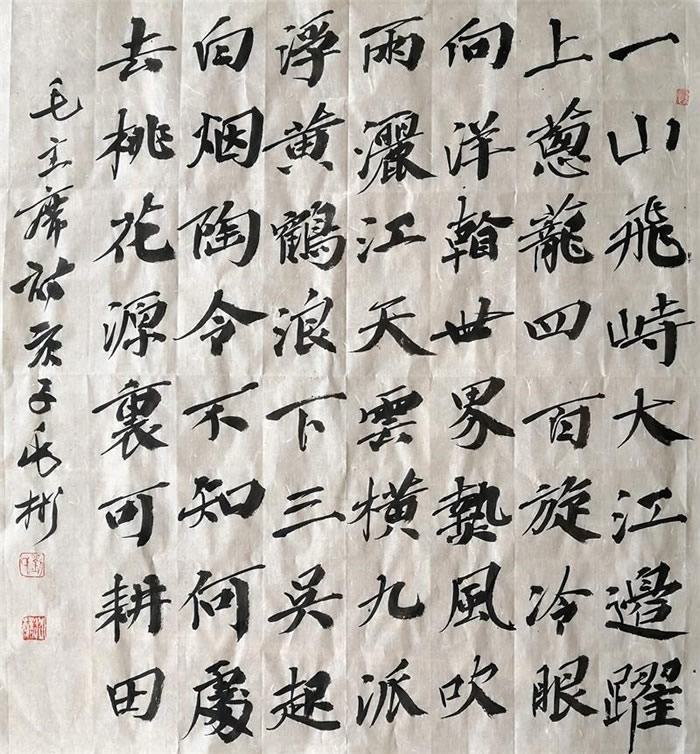 一山飛峙大江邊躍
上蔥蘢四百旋冷眼
向洋看世界熱風吹
雨灑江天雲橫九派
浮黃鶴浪下三吳起
白烟陶令不知何處
去桃花源裏可耕田
毛主席詩庚子